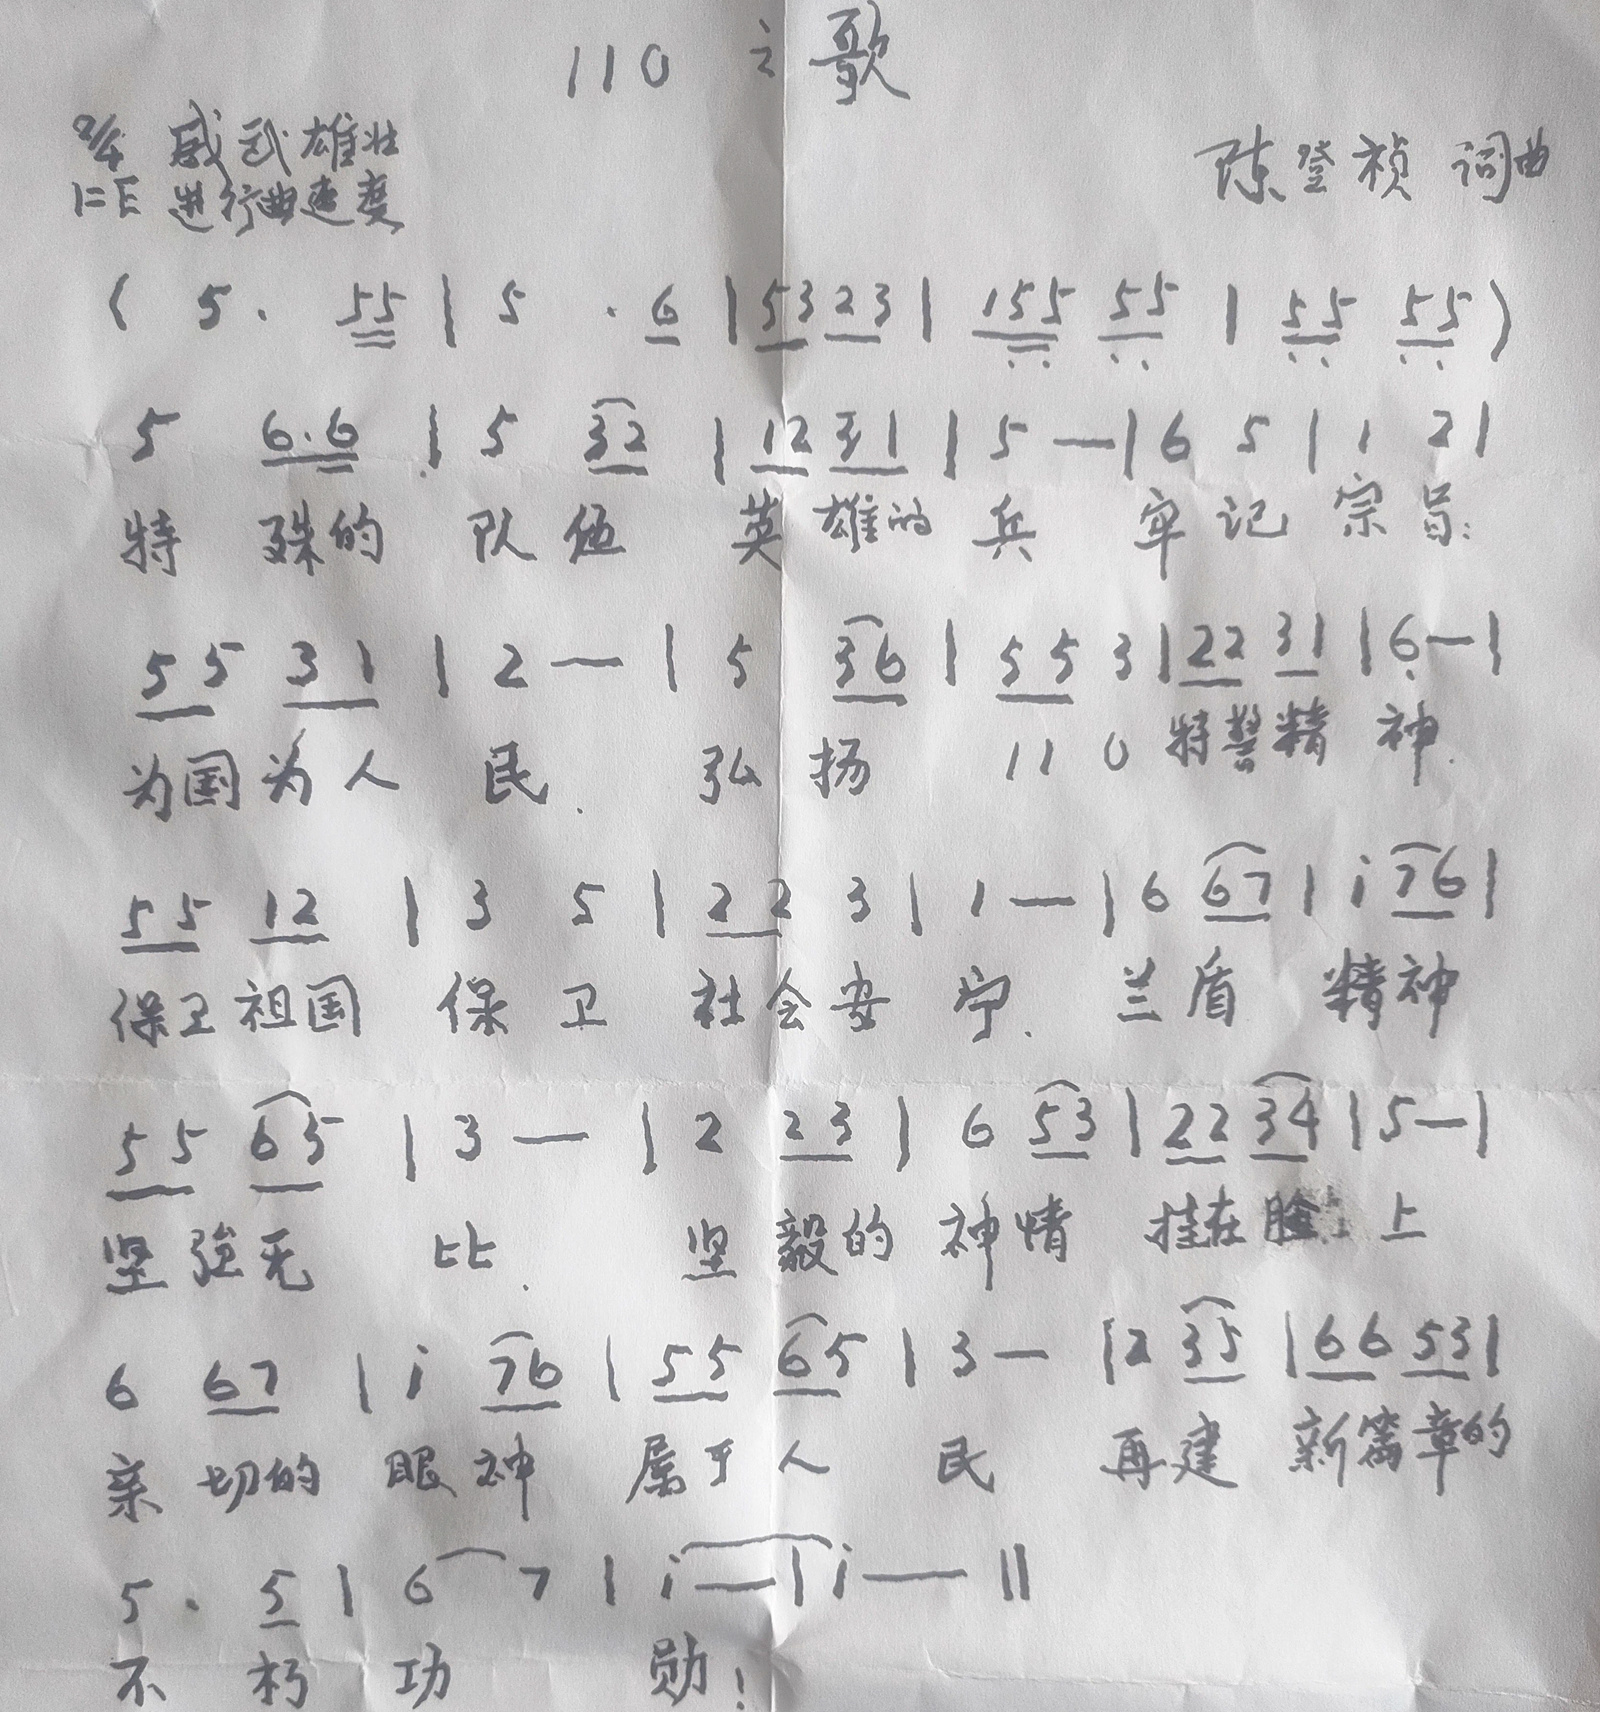 110 之歌
2/4 威武雄壮
1=E 进行曲速度
陈登祯 词曲
( 5 . 55 | 5 . 6 | 53 23 | 155 55 | 55 55 )
5 6.6 | 5 32 | 12 31 | 5 — | 6 5 | 1 2 |
特 殊的 队伍 英雄的 兵 牢记 宗旨:
55 31 | 2 — | 5 36 | 55 3 | 22 31 | 6 — |
为国为人 民. 弘扬 110 特警精 神.
55 12 | 3 5 | 22 3 | 1 — | 6 67 | i 76 |
保卫祖国 保卫 社会安 宁. 兰盾 精神
55 65 | 3 — | 2 23 | 6 53 | 22 34 | 5 — |
坚强无 比. 坚毅的 神情 挂在脸 上
6 67 | i 76 | 55 65 | 3 — | 2 35 | 66 53 |
亲 切的 眼神 属于人 民 再建 新篇章的
5 . 5 | 6 7 | i — | i — ||
不 朽 功 勋!